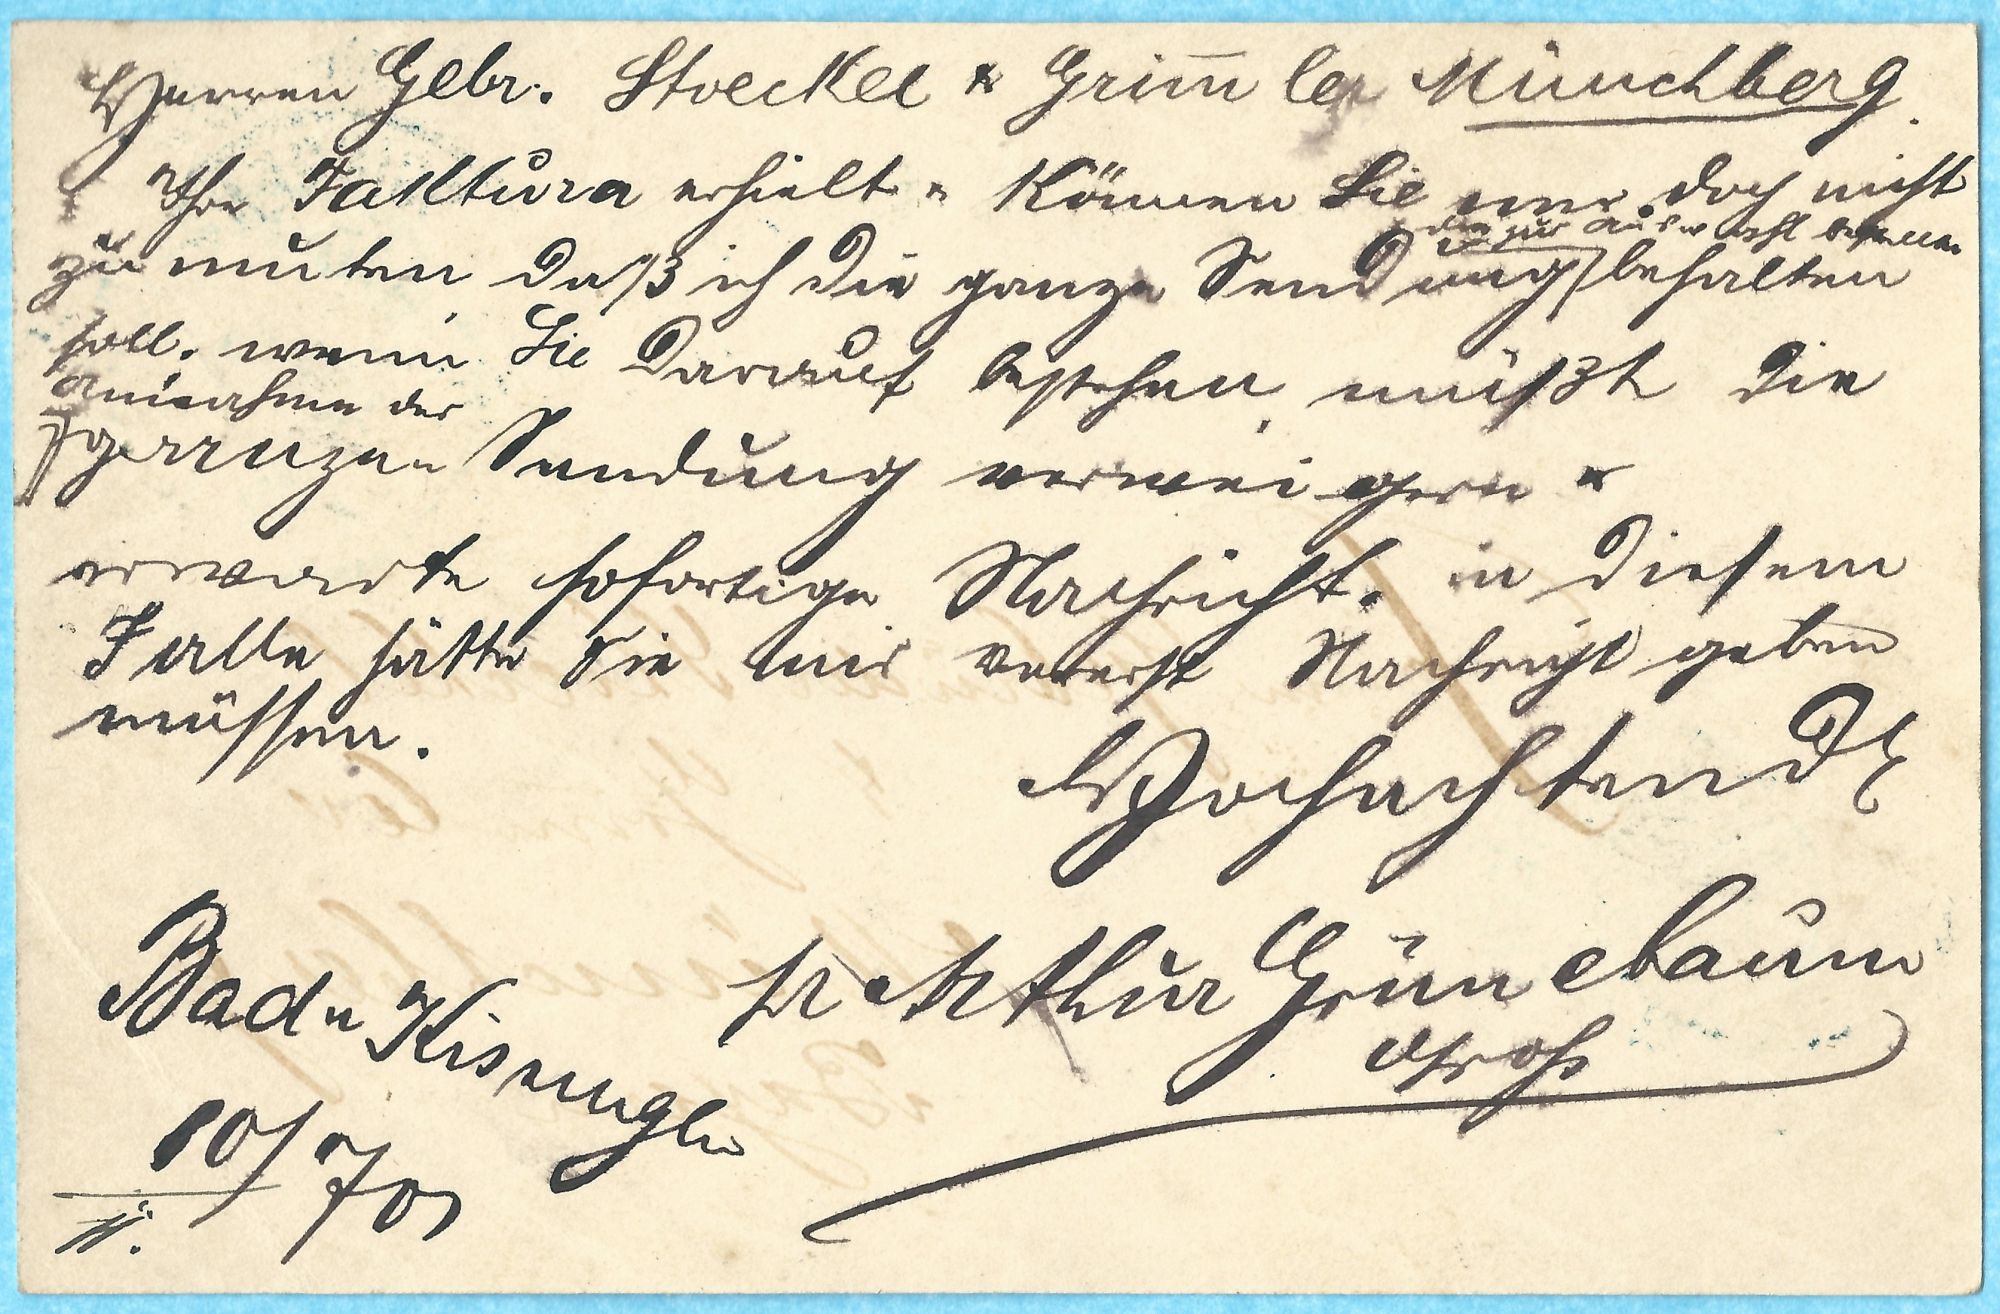 Herren Gebr. Stoeckel & Grimmler Münchberg.
Ihre Faktura erhielt & Können Sie mir doch nicht
zu muten daß ich die ganze Sendung behalten
die zur Auswahl
soll. wenn Sie Darauf bestehen müßte die
Annahme der
ganzen Sendung verweigern &
erwarte sofortige Nachricht. in Diesem
Falle hätten Sie mir vorerst Nachricht geben
müssen.
Hochachtend
Arthur Grünebaum
Bad Kissingen
10/7 01